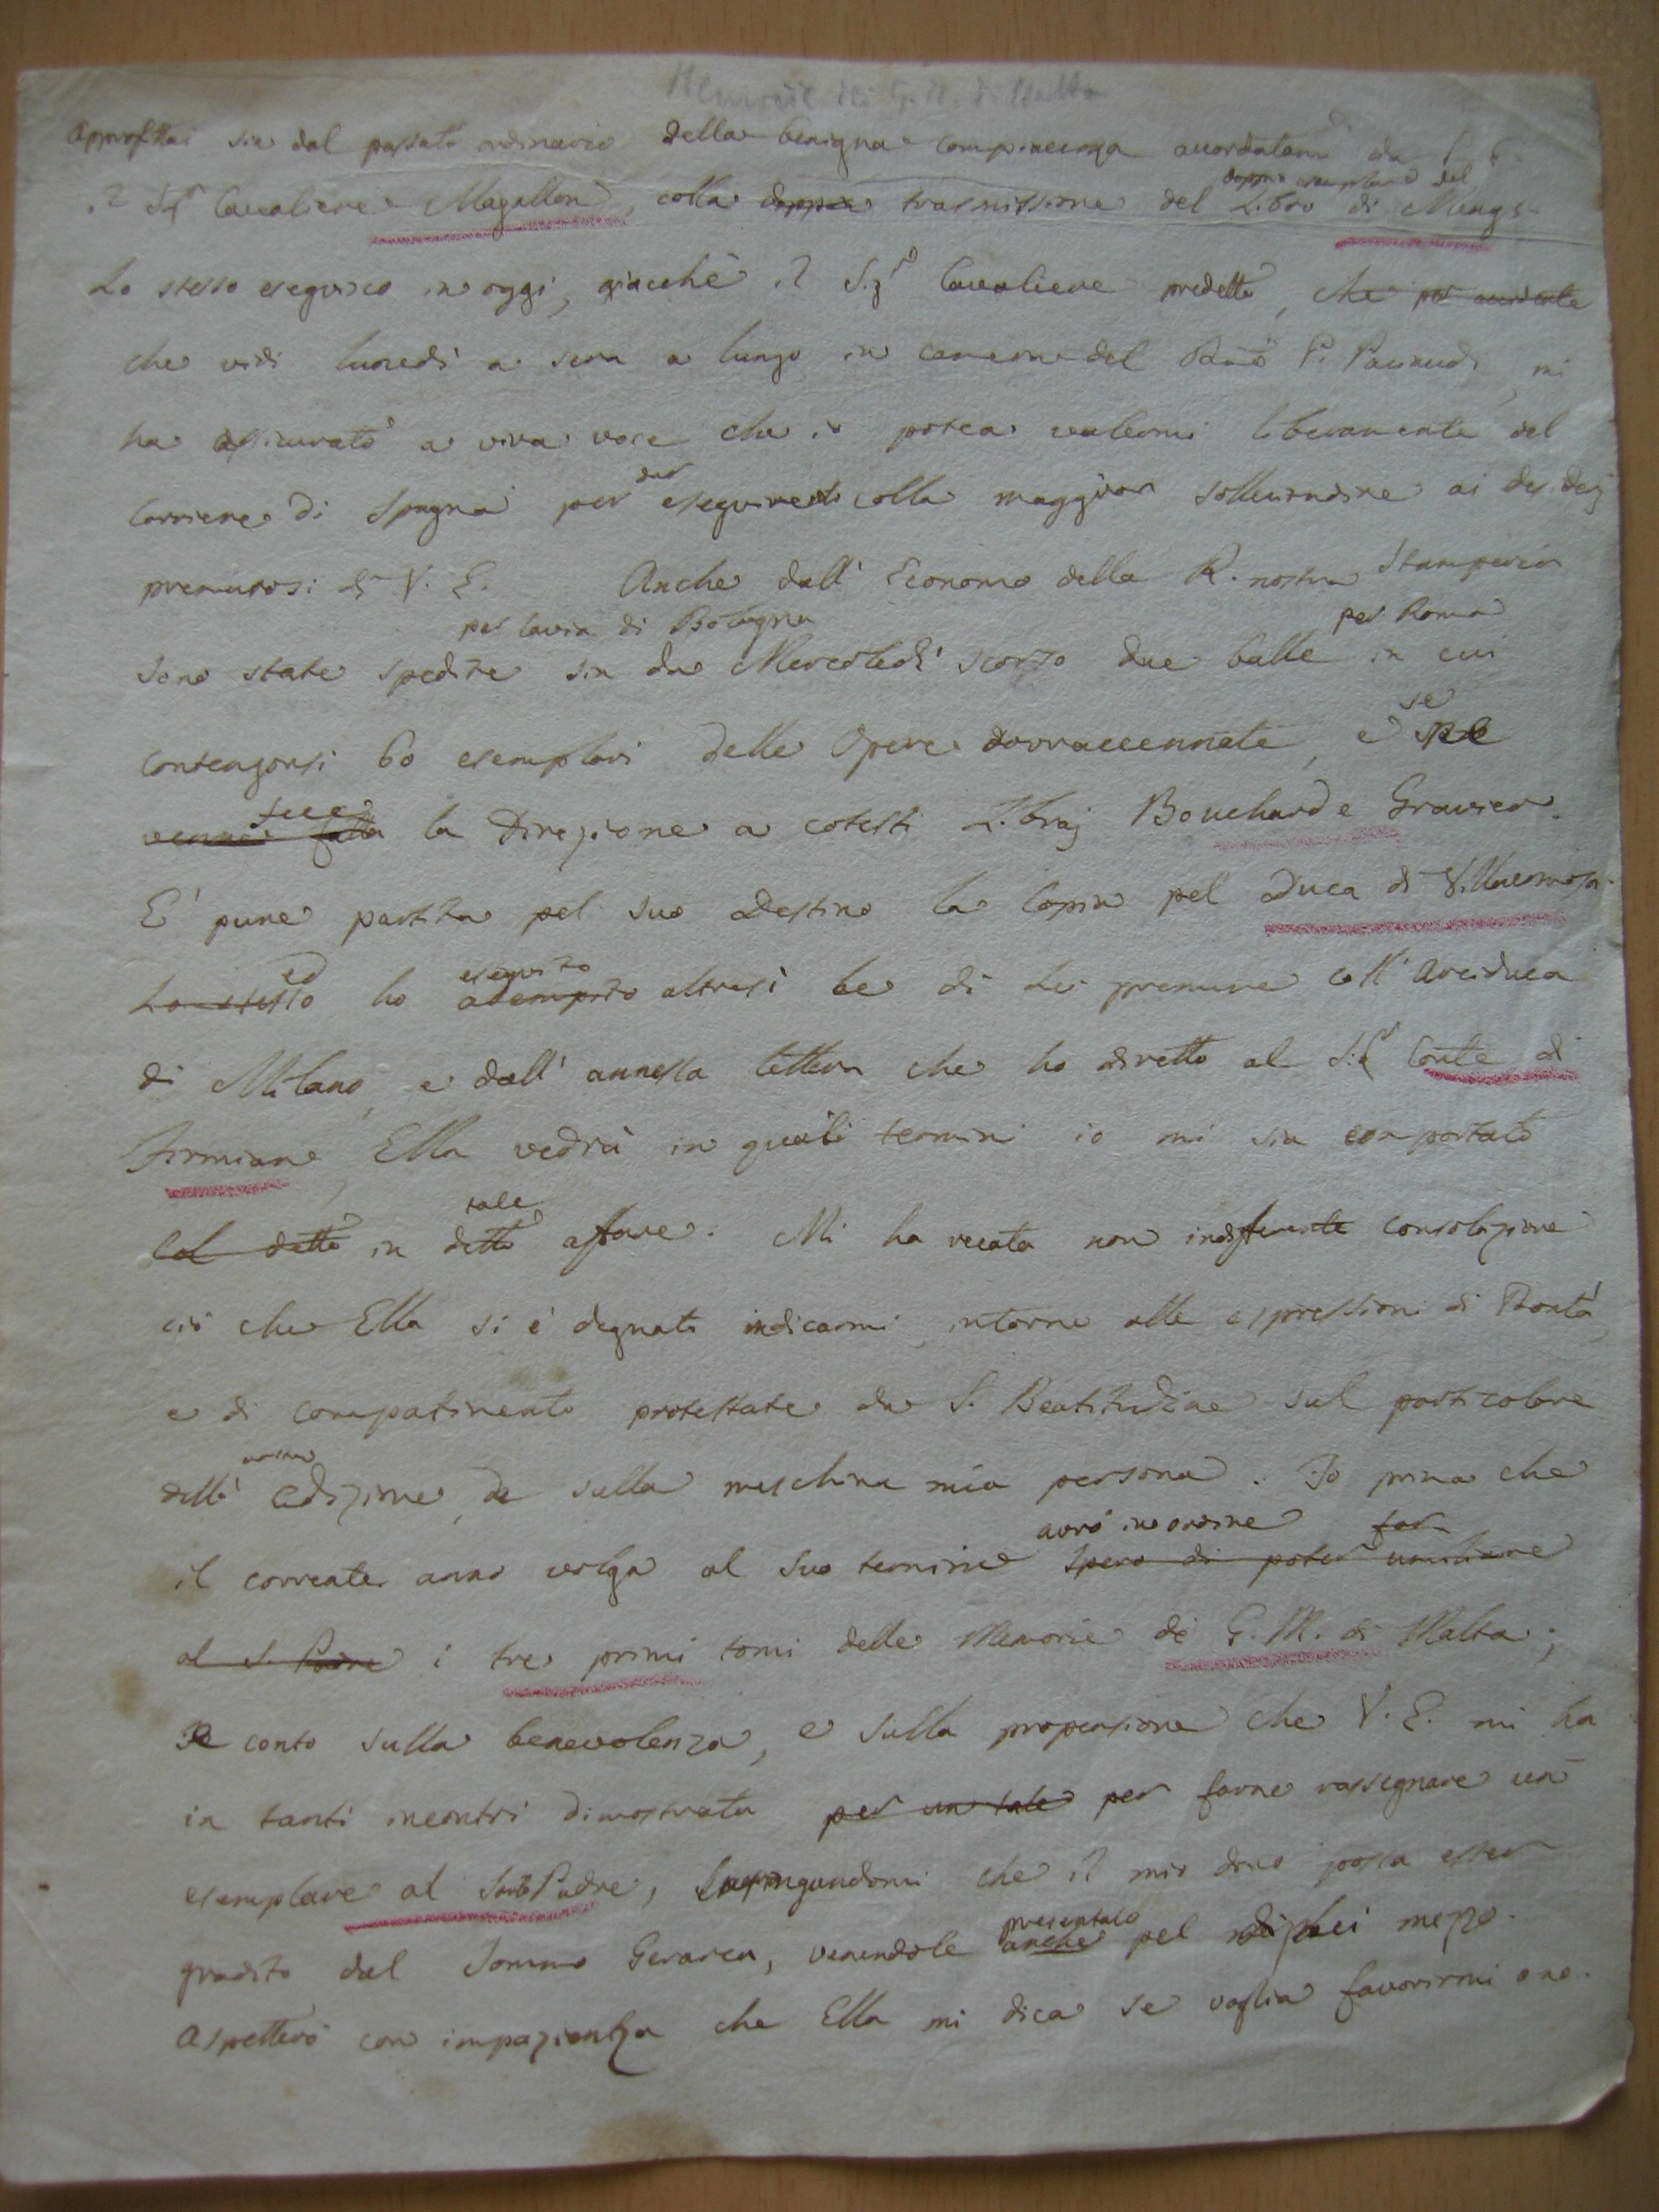 Memorie dei G. M. di Malta
Approfittai sin dal passato ordinario della benigna compiacenza accordatami da
il Sigr Cavaliere Magallon, colla doppia trasmissione del doppio esemplare del Libro di Mengs.
Lo stesso eseguisco in oggi, giacchè il Sigr Cavaliere predetto, che per accidente
che vidi lunedì a sera a lungo in camera del P. Paciaudi, mi
ha assicurato a viva voce che io potea valermi liberamente del
Corriere di Spagna per dar colla maggior sollecitudine ai desiderj
premurosi di V. E. Anche dall' Economo della R. nostra Stamperia
per la via di Bologna per Roma
sono state spedite sin da Mercoledì scorso due balle in cui
contengonsi 60 esemplari delle Opere sovraccennate, e se
fece
venne fatta la Direzione a cotesti Libraj Bouchard e Gravier.
E' pure partita pel suo Destino la Copia pel Duca di Villaermosa
ed eseguito
Lo stesso ho adempito altresì le di Lei premure coll' Arciduca
di Milano, e dall' annessa lettera che ho diretto al Sigr Conte di
Firmian, Ella vedrà in quali termini io mi sia comportato
tale
Col detto in detto affare. Mi ha recata non indifferente consolazione
ciò che Ella si è degnata indicarmi, intorno alle espressioni di Bontà,
e di compatimento protestate da S. Beatitudine sul particolare
nostra
dell' edizione, e sulla meschina mia persona. Io prima che
avrò in ordine far
il corrente anno volga al suo termine spero di poter umiliare
al S. Padre i tre primi tomi delle Memorie de G. M. di Malta;
e conto sulla benevolenza, e sulla propensione che V. E. mi ha
in tanti incontri dimostrata per un tale per farne rassegnare un
esemplare al Santo Padre, lusingandomi che il mio dono possa esser
presentato
gradito dal Sommo Gerarca, venendole anche pel di lei mezzo.
Aspetterò con impazienza che Ella mi dica se voglia favorirmi o no.